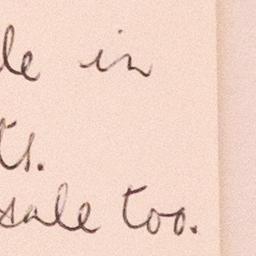 le in
ts.
sale too.